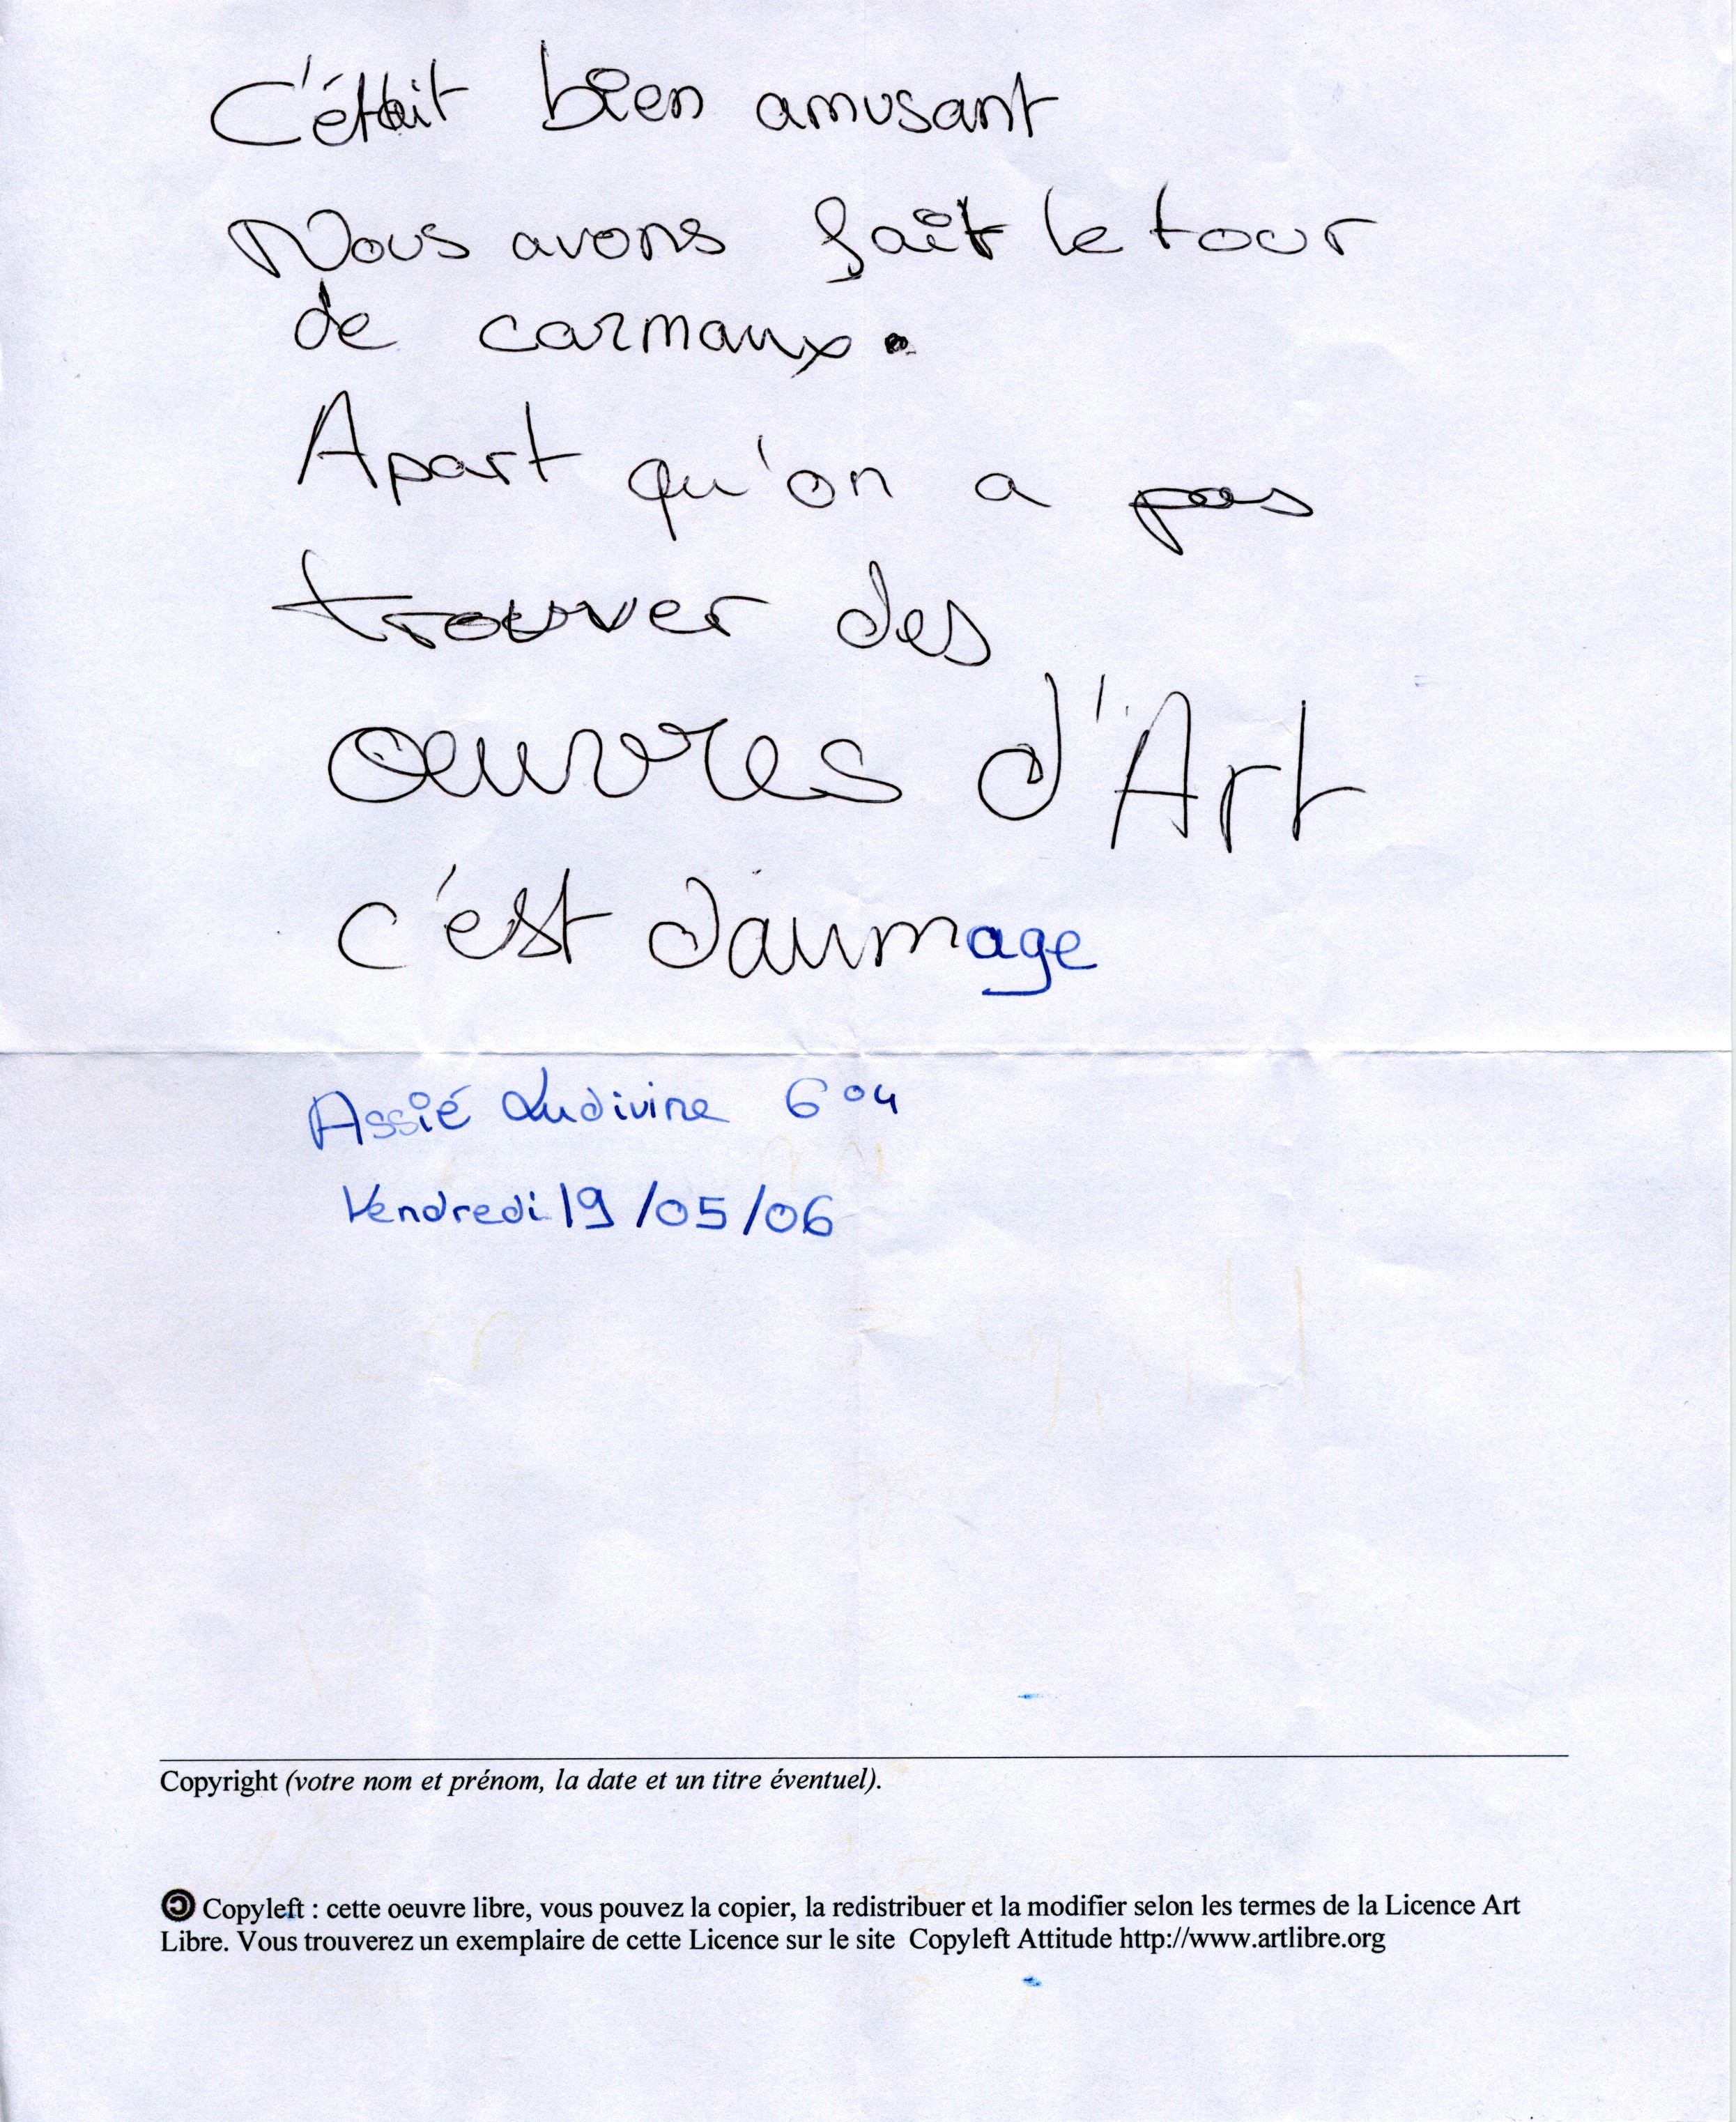 C'était bien amusant
Nous avons fait le tour
de carmaux.
Apart qu'on a pas
trouver des
œuvres d'Art
c'est daumage
Assié Ludivine 6°4
Vendredi 19/05/06
Copyright (votre nom et prénom, la date et un titre éventuel).
Copyleft : cette oeuvre libre, vous pouvez la copier, la redistribuer et la modifier selon les termes de la Licence Art
Libre. Vous trouverez un exemplaire de cette Licence sur le site Copyleft Attitude http://www.artlibre.org